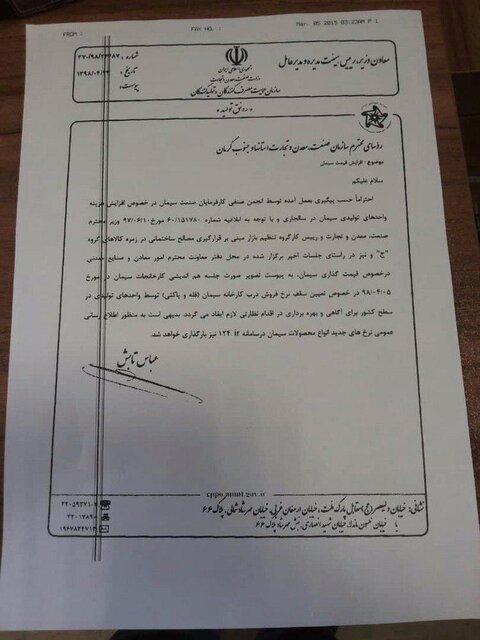 FROM :
FAX NO. :
Mar. 05 2015 03:23AM P 1
معاون وزیر، رییس هیئت مدیره و مدیرعامل
جمهوری اسلامی ایران
وزارت صنعت، معدن و تجارت
سازمان حمایت مصرف کنندگان و تولیدکنندگان
شماره :
تاریخ : ۱۳۹۸/۰۴/۲۳
پیوست:
«رونق تولید»
رؤسای محترم سازمان صنعت، معدن و تجارت استانها و جنوب کرمان
موضوع : افزایش قیمت سیمان
سلام علیکم
احتراماً حسب پیگیری بعمل آمده توسط انجمن صنفی کارفرمایان صنعت سیمان در خصوص افزایش هزینه
واحدهای تولیدی سیمان در سالجاری و با توجه به ابلاغیه شماره ۶۰/۱۵۱۷۸۰ مورخ ۹۷/۰۶/۱۰ وزیر محترم
صنعت، معدن و تجارت و رییس کارگروه تنظیم بازار مبنی بر قرارگیری مصالح ساختمانی در زمره کالاهای گروه
"ج" و نیز در راستای جلسات اخیر برگزار شده در محل دفتر معاونت محترم امور معادن و صنایع معدنی
درخصوص قیمت گذاری سیمان، به پیوست تصویر صورت جلسه هم اندیشی کارخانجات سیمان در مورخ
۹۸/۰۴/۰۵ در خصوص تعیین سقف نرخ فروش درب کارخانه سیمان (فله و پاکتی) توسط واحدهای تولیدی در
سطح کشور برای آگاهی و بهره برداری در اقدام نظارتی لازم ایفاد می گردد. بدیهی است به منظور اطلاع رسانی
عمومی نرخ های جدید انواع محصولات سیمان درسامانه ۱۲۴.ir نیز بارگذاری خواهد شد.
عباس تابش
cppo.mimt.gov.ir
نشانی: خیابان ولیعصر (عج) مقابل پارک ملت، خیابان ارمغان غربی، خیابان مهرشاد شمالی، پلاک ۶۶
یا خیابان نلسون ماندلا، خیابان شهید انصاری، نبش مهرشاد پلاک ۶۶
۱۹۶۷۸۳۴۷۱۳